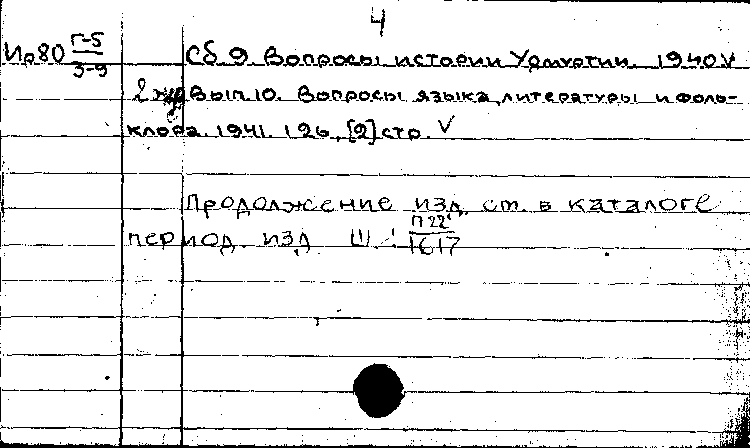 4
Ир80 Г-5/3-9
Сб. 9. Вопросы истории Удмуртии. 1940 V
Вып. 10. Вопросы языка, литературы и фоль-
клора. 1941. 126, [2] стр. V
Продолжение изд. см. в каталоге
период. изд. Ш: П22/1617